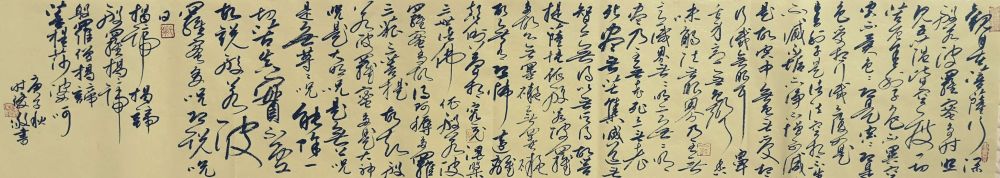 觀自在菩薩行深
般若波羅蜜多時照
見五蘊皆空度一切
苦厄舍利子色不異空
空不異色色即是空空即是
色受想行識亦復如是
舍利子是諸法空相不生
不滅不垢不淨不增不減
是故空中無色無受
想行識無眼耳鼻
舌身意無色聲香
味觸法無眼界乃至無
意識界無無明亦無無明
盡乃至無老死亦無老
死盡無苦集滅道無
智亦無得以無所得故菩
提薩埵依般若波羅
蜜多故心無罣礙無罣礙
故無有恐怖遠離
顛倒夢想究竟涅槃
三世諸佛依般若波
羅蜜多故得阿耨多羅
三藐三菩提故知般
若波羅蜜多是大神
咒是大明咒是無上咒
是無等等咒能除一
切苦真實不虛
故說般若波
羅蜜多咒即說咒
曰
揭諦揭諦
般羅揭諦
般羅僧揭諦
菩提莎婆呵
庚子秋
書